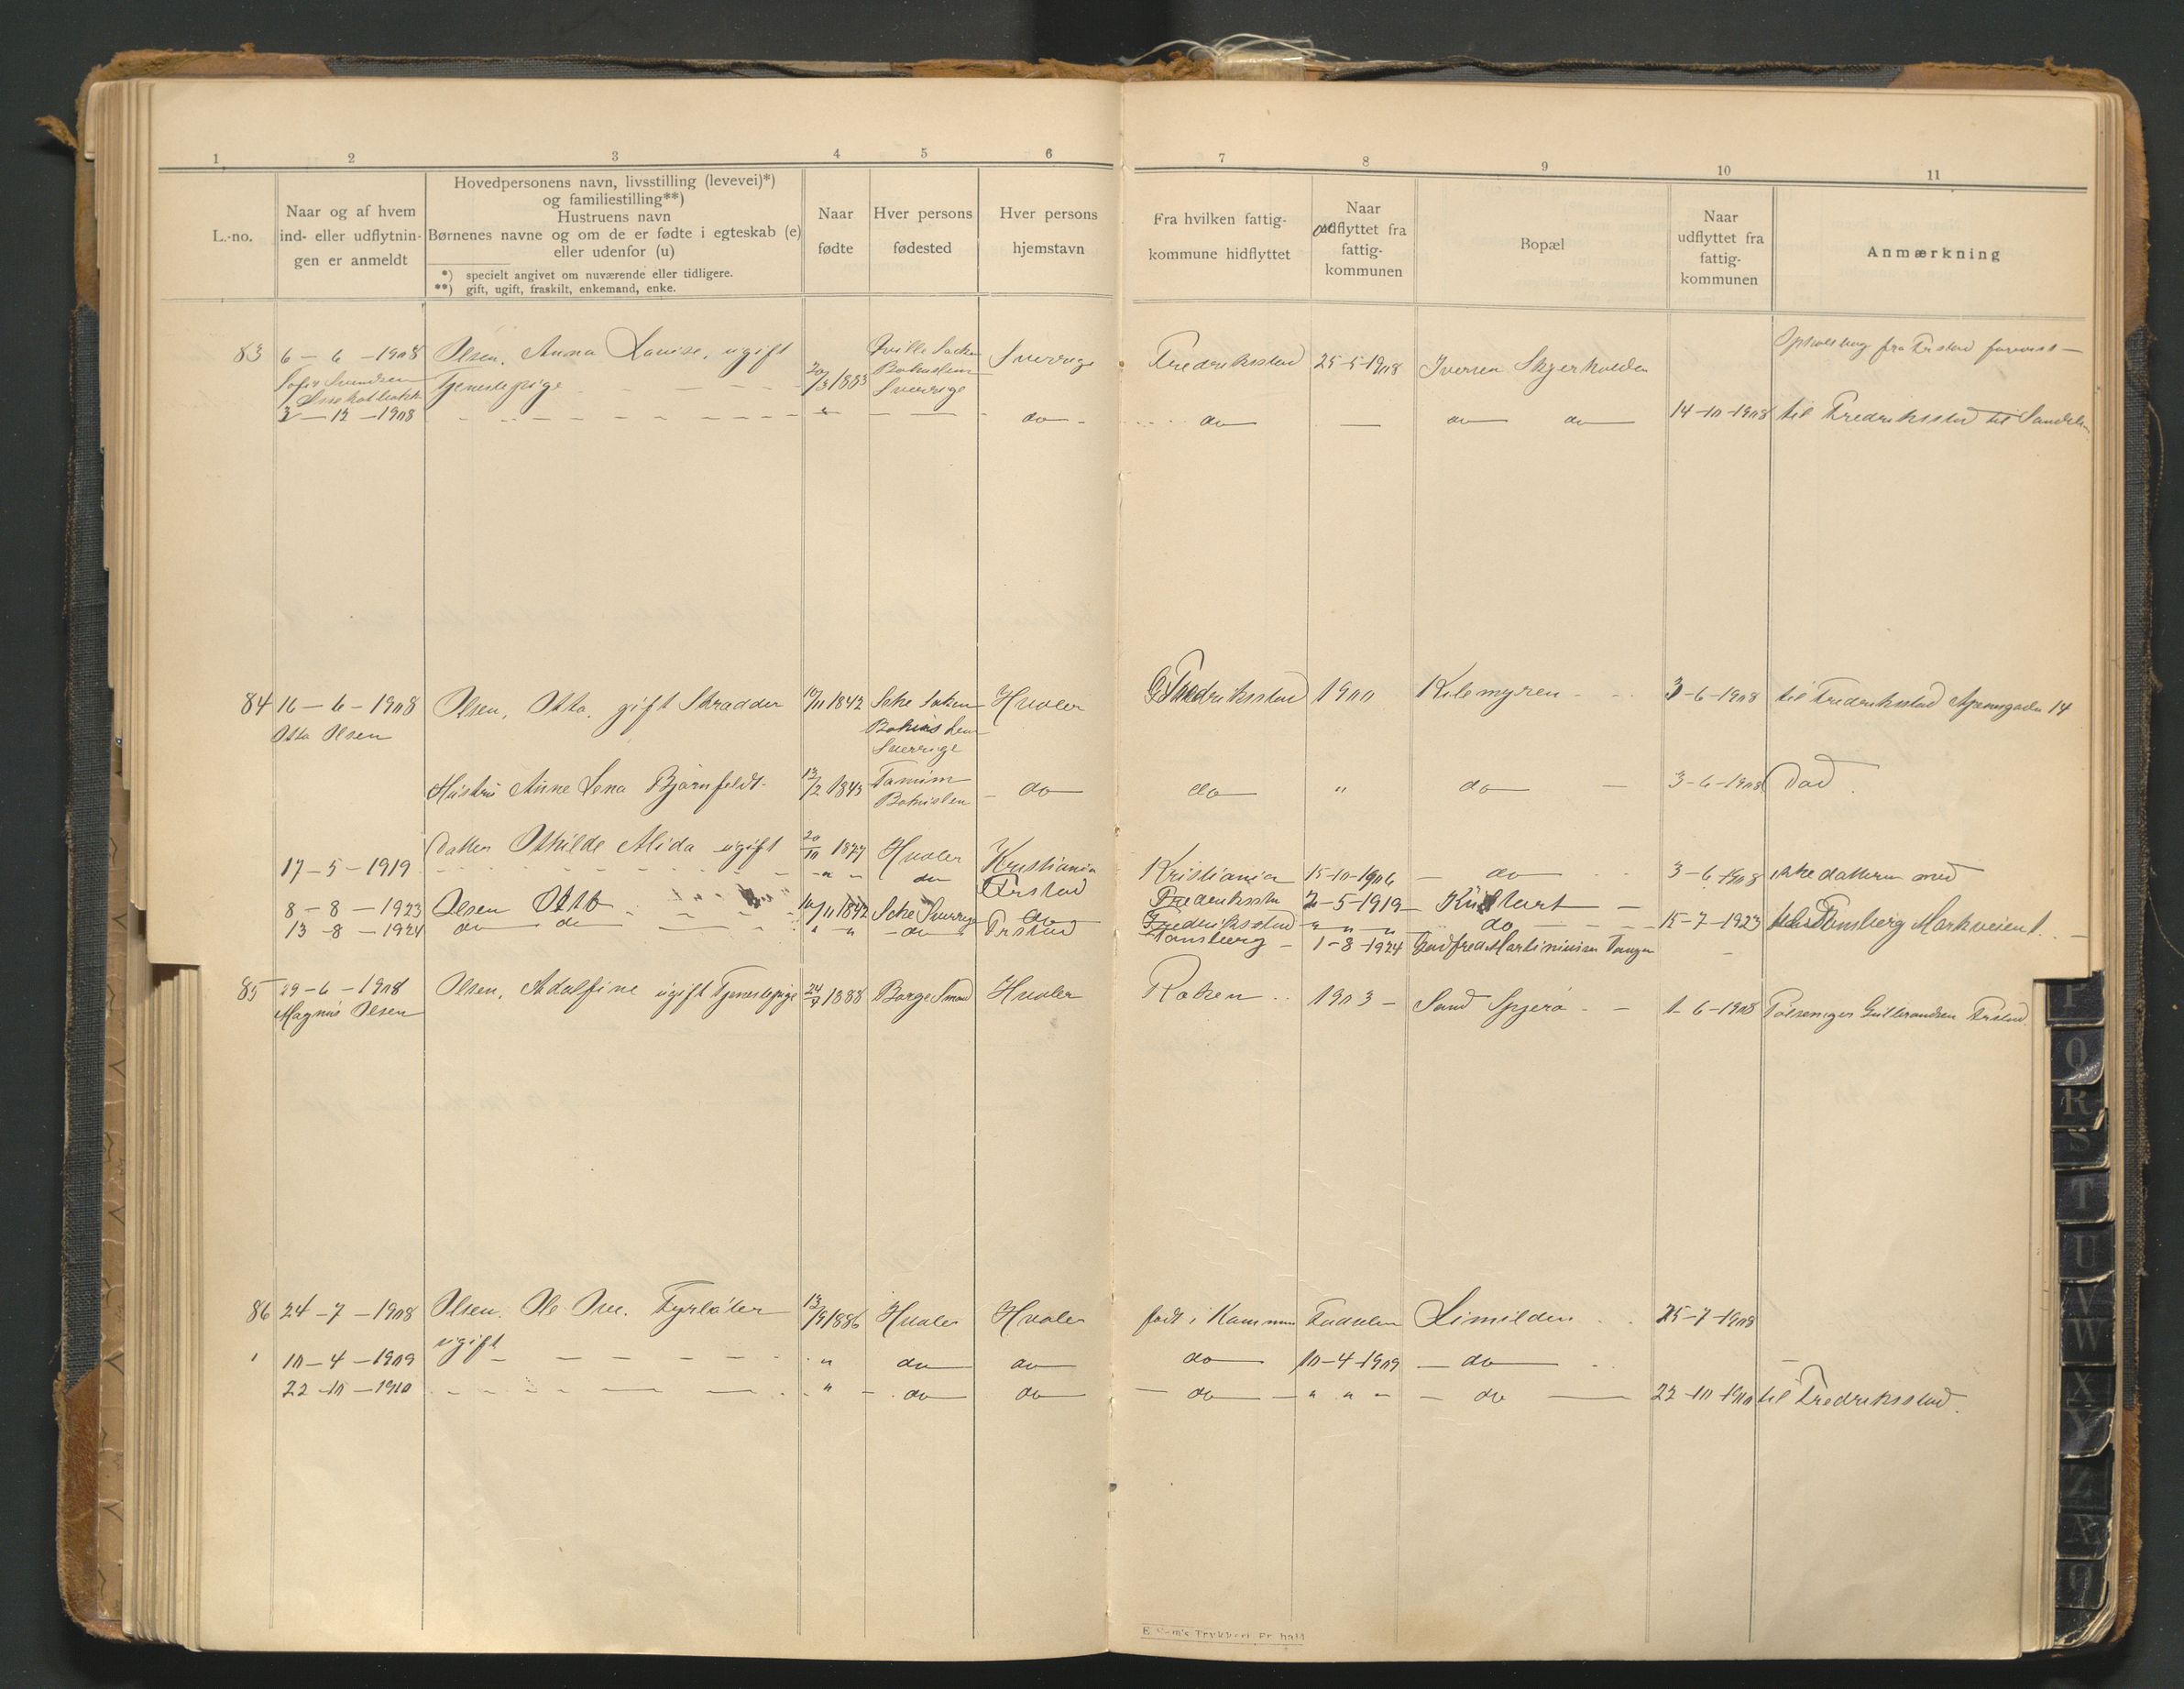 1 2 3 4 5 6 7 8 9 10 11
L.-no.
Naar og af hvem
ind- eller udflytnin-
gen er anmeldt
Hovedpersonens navn, livsstilling (levevei)*)
og familiestilling**)
Hustruens navn
Børnenes navne og om de er fødte i egteskab (e)
eller udenfor (u)
*) specielt angivet om nuværende eller tidligere.
**) gift, ugift, fraskilt, enkemand, enke.
Naar
fødte
Hver persons
fødested
Hver persons
hjemstavn
Fra hvilken fattig-
kommune hidflyttet
Naar
indflyttet fra
fattig-
kommunen
Bopæl
Naar
udflyttet fra
fattig-
kommunen
Anmærkning
83 6-6-1908 Olsen, Anna Lovise, ugift 20/3 1883 Qville Socken Sverrige Fredriksstad 25-5-1908 Iversen Skjerholden fra Frstad forevist —
Sofie Svendsen Tjenestepige Bohuslen
Sverrige
3-12-1908 " do do — do do 14-10-1908 til Fredriksstad til
84 16-6-1908 Olsen, Otto, gift Skradder 10/11 1842 Socken Hvaler Fredriksstad 1900 Kilemyren 3-6-1908 til Fredriksstad 14
Otto Olsen Bohus len
Sverrige
Hustru Anne Lena Bjørnfeldt 12/2 1843 Tanum do do " do 3-6-1908 Død.
Bohuslen
Datter Othilde Alida ugift 20/10 1877 Hvaler Kristiania
17-5-1919 " " do Frstad Kristiania 15-10-1906 do 3-6-1908 ikke datteren med
8-8-1923 Olsen Otto 10/11 1842 Sverrige do Fredriksstad 2-5-1919
13-8-1924 do do " " do Frstad Fredriksstad " " " do 15-7-1923 Tønsberg Markveien 1.
Tønsberg 1-8-1924 Martiniusen Tangen
85 29-6-1908 Olsen, Adolfine ugift Tjenestepige 24/7 1888 Borge Hvaler Roken 1903 Sand Spjerø 1-6-1908 Gulbrandsen Frstad
Magnus Olsen
86 24-7-1908 Olsen, Ole Fyrbøter 13/9 1886 Hvaler Hvaler født i Kommunen Fødselen 25-7-1908
ugift
10-4-1909 " do do do 10-4-1909 do —
22-10-1910 " do do do " " " do 22-10-1910 til Fredriksstad.
P
Q
R
S
T
U
V
W
X
Y
Z
Æ
Ø